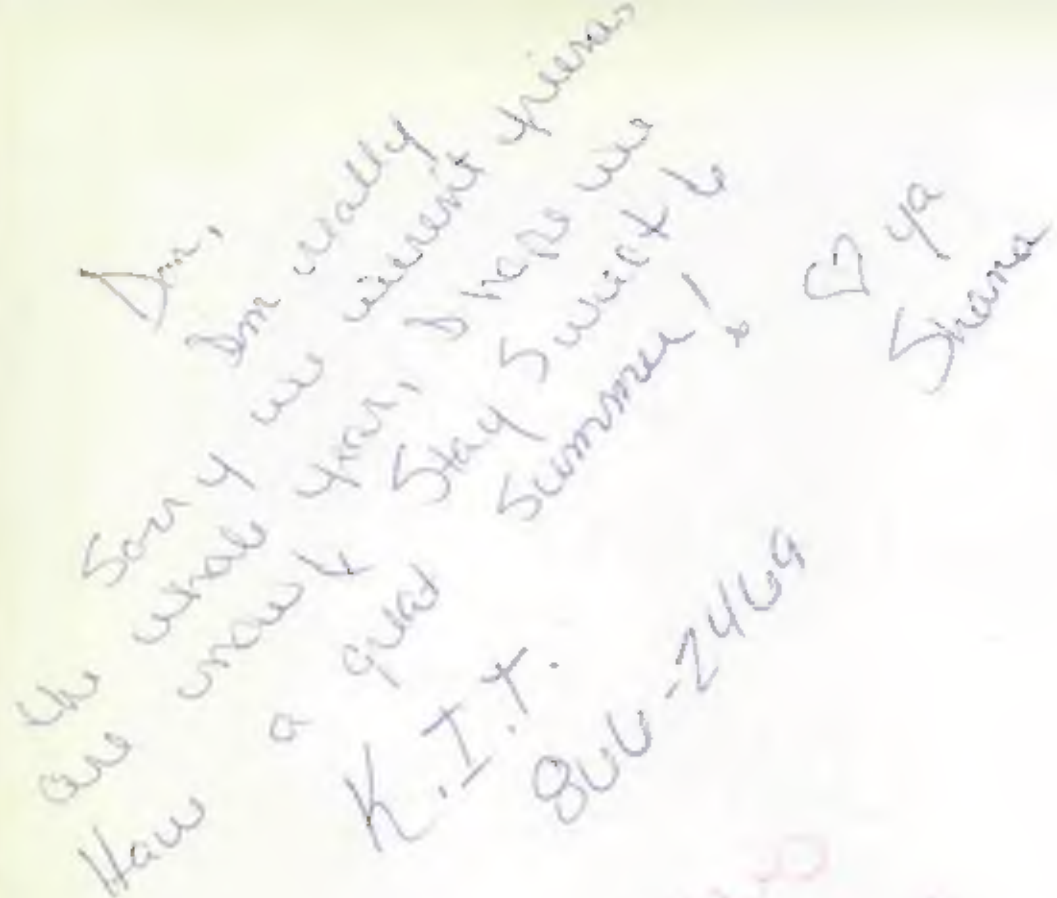 Dan,
I'm really
Sorry we weren't friends
the whole year, I hope we
are now & Stay Sweet &
Have a great Summer!
♡ ya
Shana
K.I.T.
866-2469